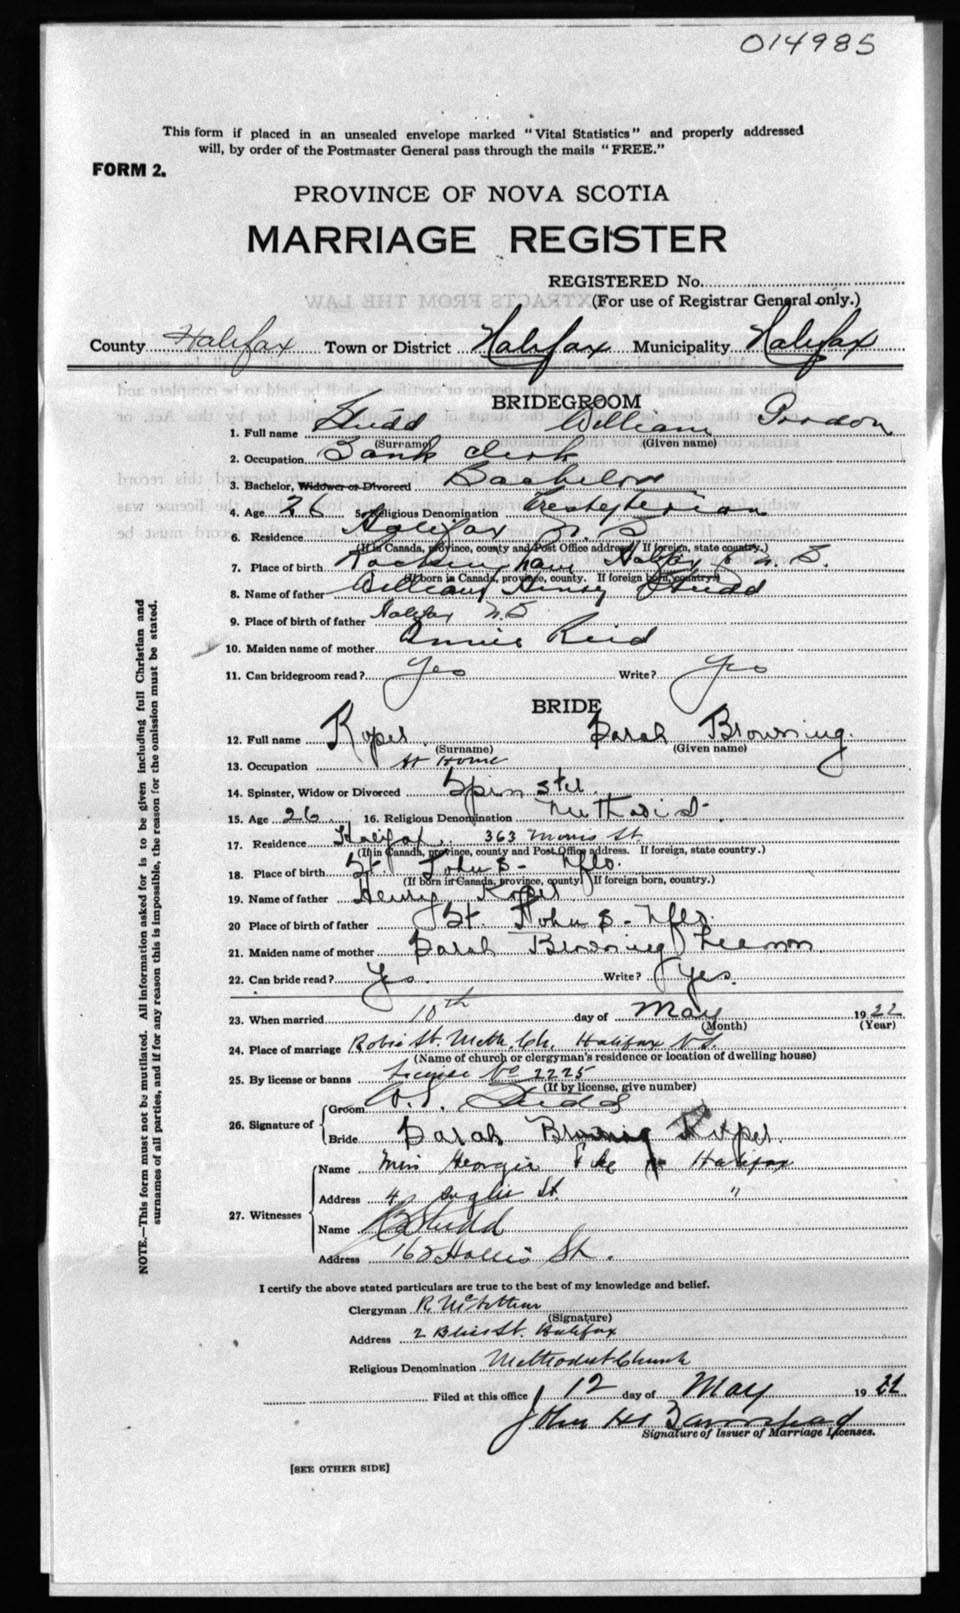 014985
This form if placed in an unsealed envelope marked "Vital Statistics" and properly addressed
will, by order of the Postmaster General pass through the mails "FREE."
FORM 2.
PROVINCE OF NOVA SCOTIA
MARRIAGE REGISTER
REGISTERED No.
(For use of Registrar General only.)
County Halifax Town or District Halifax Municipality Halifax
BRIDEGROOM
1. Full name Studd William Gordon
(Surname) (Given name)
2. Occupation Bank Clerk
3. Bachelor, Widower or Divorced Bachelor
4. Age 26 5. Religious Denomination Presbyterian
6. Residence Halifax N. S.
(If in Canada, province, county and Post Office address. If foreign, state country.)
7. Place of birth Rockingham Halifax Co N. S.
(If born in Canada, province, county. If foreign born, country.)
8. Name of father William Henry Studd
9. Place of birth of father Halifax N.S
10. Maiden name of mother Annie Reid
11. Can bridegroom read? Yes Write? Yes
BRIDE
12. Full name Roper Sarah Browning.
(Surname) (Given name)
13. Occupation At Home
14. Spinster, Widow or Divorced Spinster
15. Age 26 16. Religious Denomination Methodist.
17. Residence Halifax 363 Morris St.
(If in Canada, province, county and Post Office address. If foreign, state country.)
18. Place of birth St. John's - Nfld.
(If born in Canada, province, county. If foreign born, country.)
19. Name of father Henry Roper
20 Place of birth of father St. John's - Nfld.
21. Maiden name of mother Sarah Browning Leamon
22. Can bride read? Yes. Write? Yes.
23. When married 10th day of May 1922
(Month) (Year)
24. Place of marriage Robie St. Meth. Ch. Halifax N.S.
(Name of church or clergyman's residence or location of dwelling house)
25. By license or banns License No 2225
(If by license, give number)
26. Signature of
Groom Studd
Bride Sarah Browning Roper.
27. Witnesses
Name Miss Georgie Halifax
Address 4 Inglis St. "
Name Studd
Address Hollis St.
I certify the above stated particulars are true to the best of my knowledge and belief.
Clergyman R.
(Signature)
Address 2 Bliss St. Halifax
Religious Denomination Methodist Church
Filed at this office 12 day of May 1922
John
Signature of Issuer of Marriage Licenses.
[SEE OTHER SIDE]
NOTE.—This form must not be mutilated. All information asked for is to be given including full Christian and
surnames of all parties, and if for any reason this is impossible, the reason for the omission must be stated.